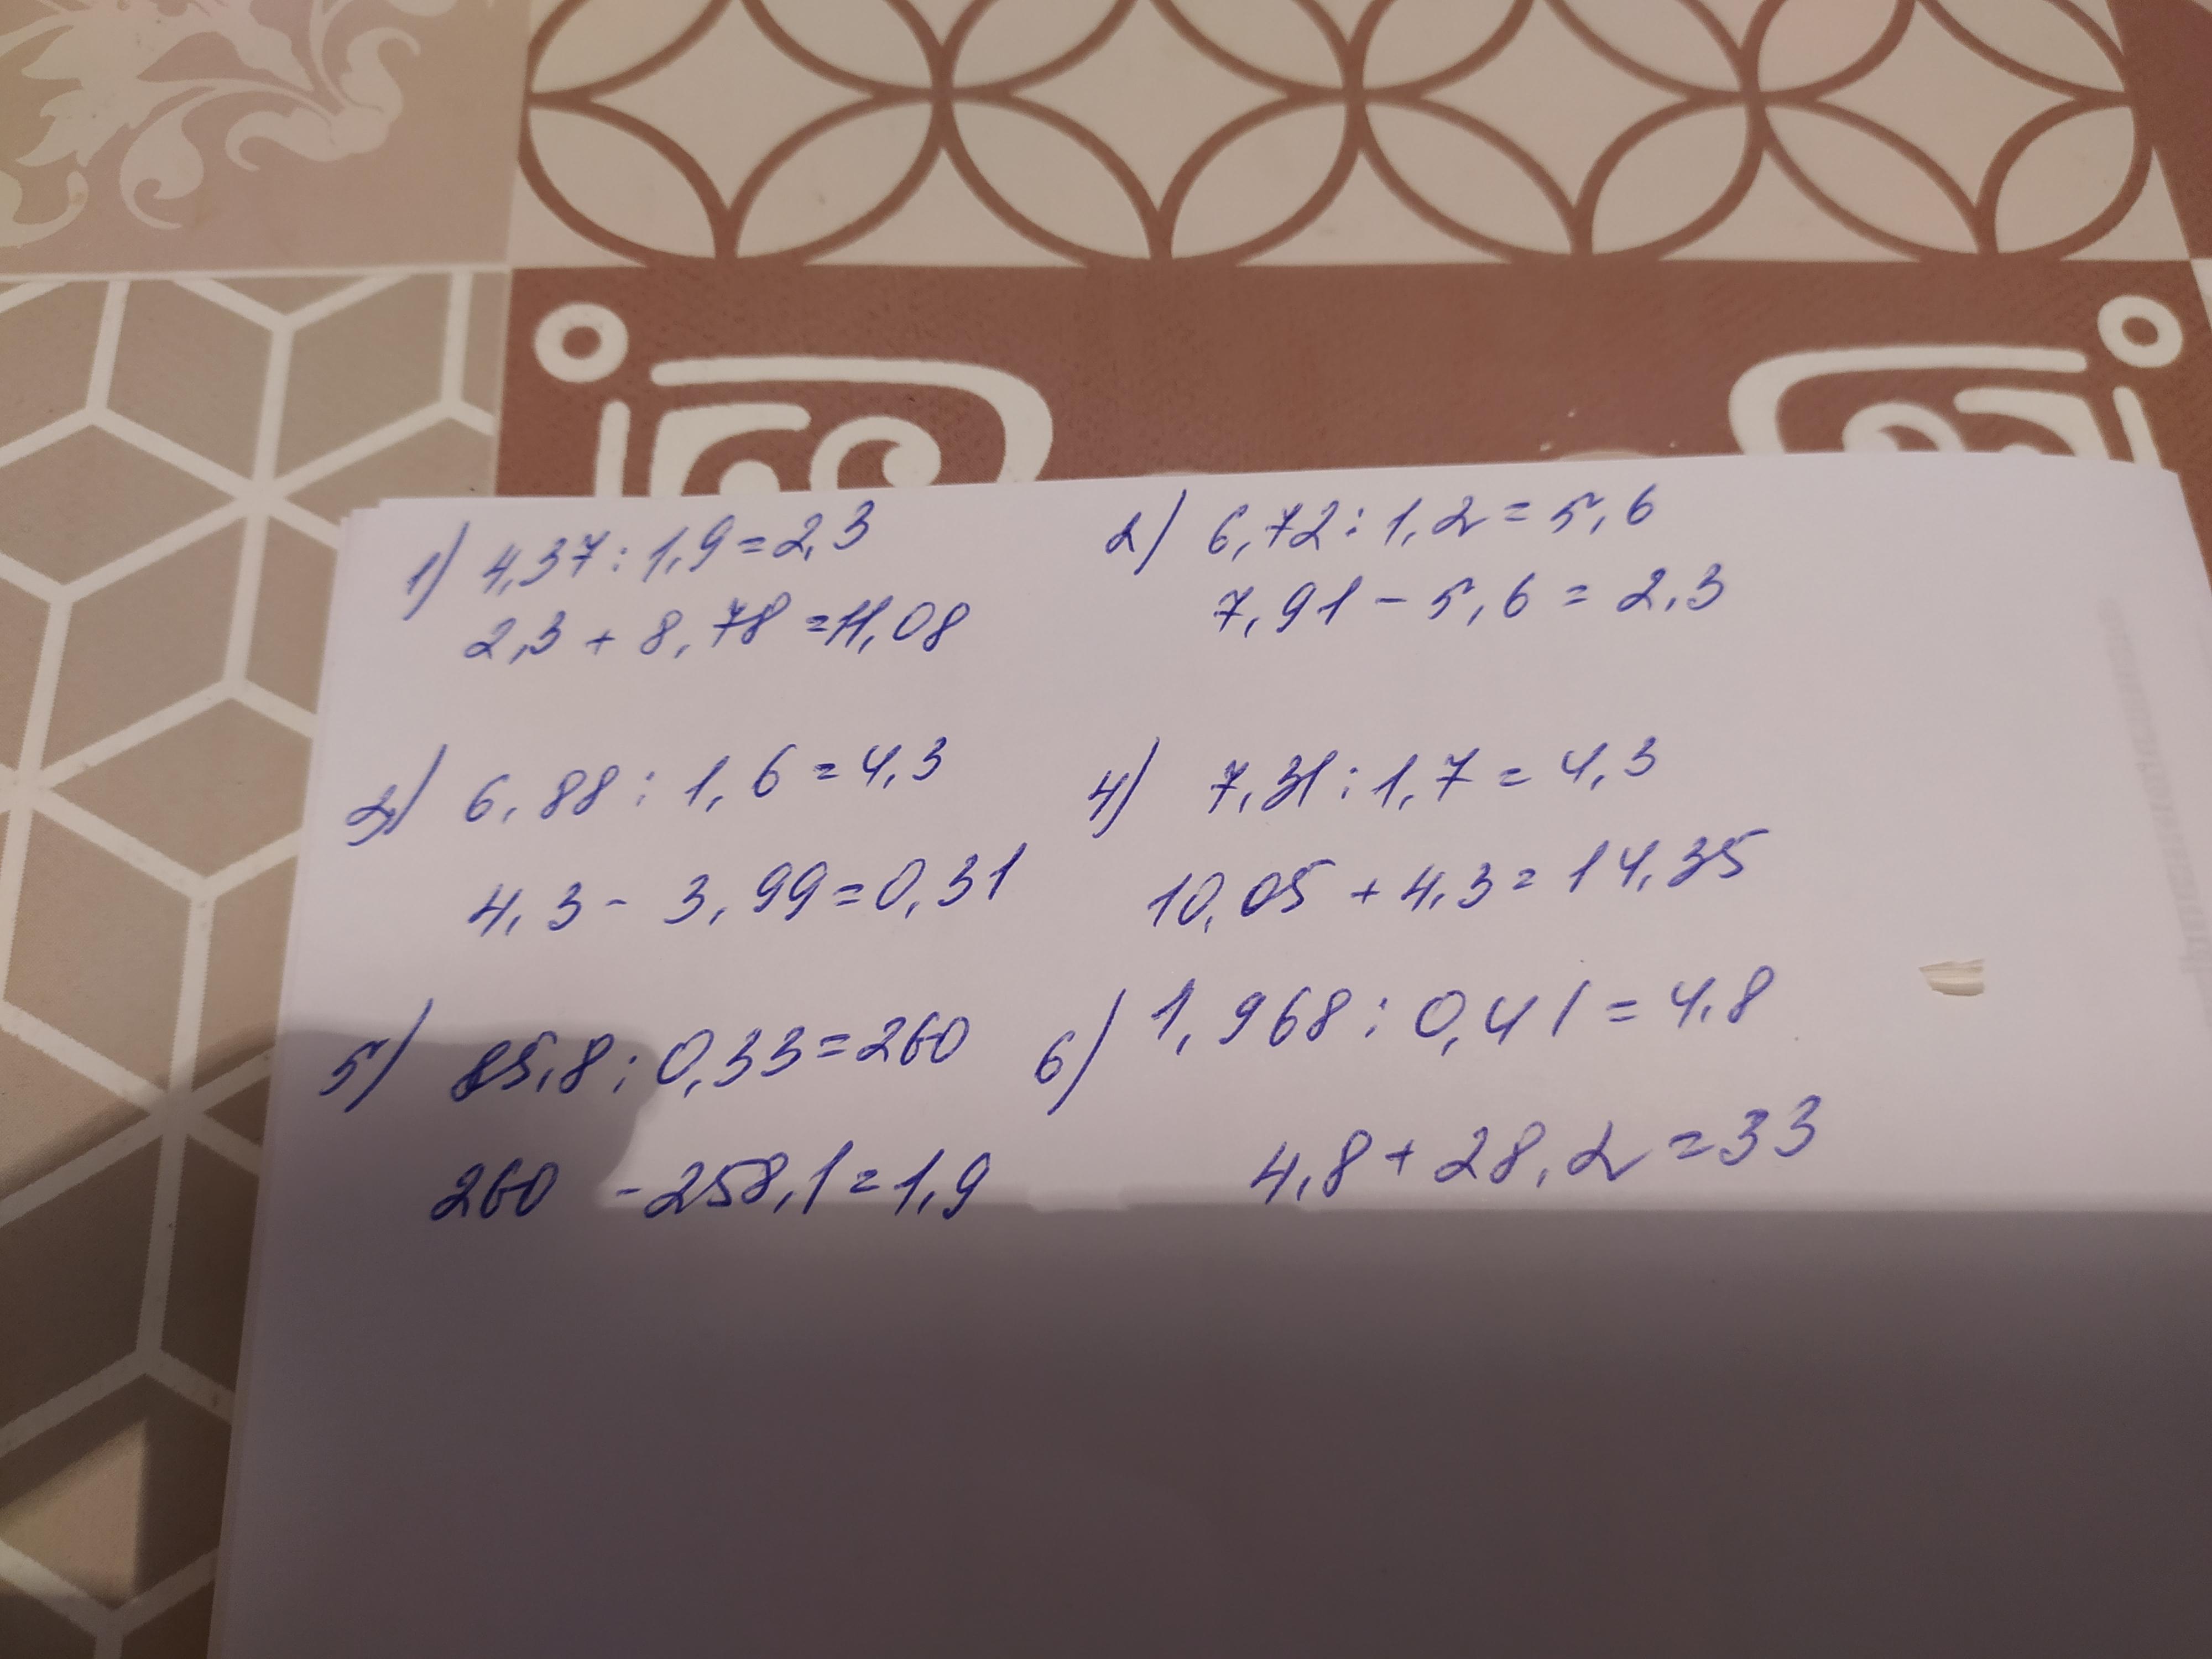 1) 4,37 : 1,9 = 2,3
2,3 + 8,78 = 11,08
2) 6,72 : 1,2 = 5,6
7,91 - 5,6 = 2,3
3) 6,88 : 1,6 = 4,3
4,3 - 3,99 = 0,31
4) 7,31 : 1,7 = 4,3
10,05 + 4,3 = 14,35
5) 85,8 : 0,33 = 260
260 - 258,1 = 1,9
6) 1,968 : 0,41 = 4,8
4,8 + 28,2 = 33